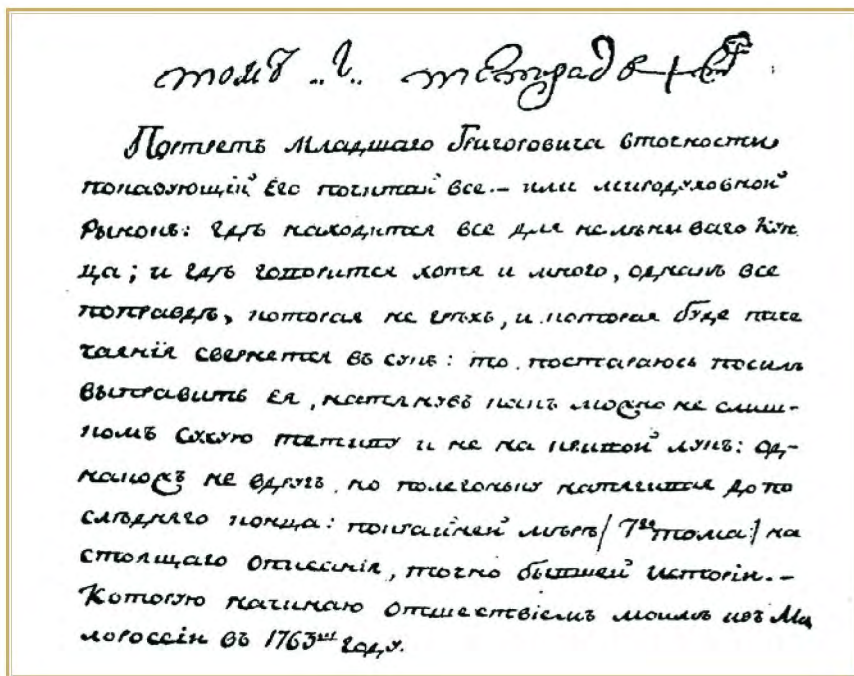 томъ ..1.. тетрадь
Портретъ Младшаго Григоровича вточности
показующій Его почитай все.- или миродуховной
Рынокъ: гдѣ находится все для нелѣниваго Куп
ца; и гдѣ говорится хотя и много, однакъ все
поправдѣ, которая не грѣхъ, и которая буде паче
чаянія свернется въ сукъ: то постараюсь посилѣ
выправить Ея, натянувъ какъ можно не слиш-
комъ сухую тетиву и не на лукъ: од-
накожъ не вдругъ, но полегоньку натягивая до по
слѣдняго конца: покрайней мѣрѣ /7го тома:/ на
стоящаго описанія, точно бытшей Исторіи.-
Которую начинаю отшествіемъ моимъ изъ Ма
лороссіи въ 1763мъ году.